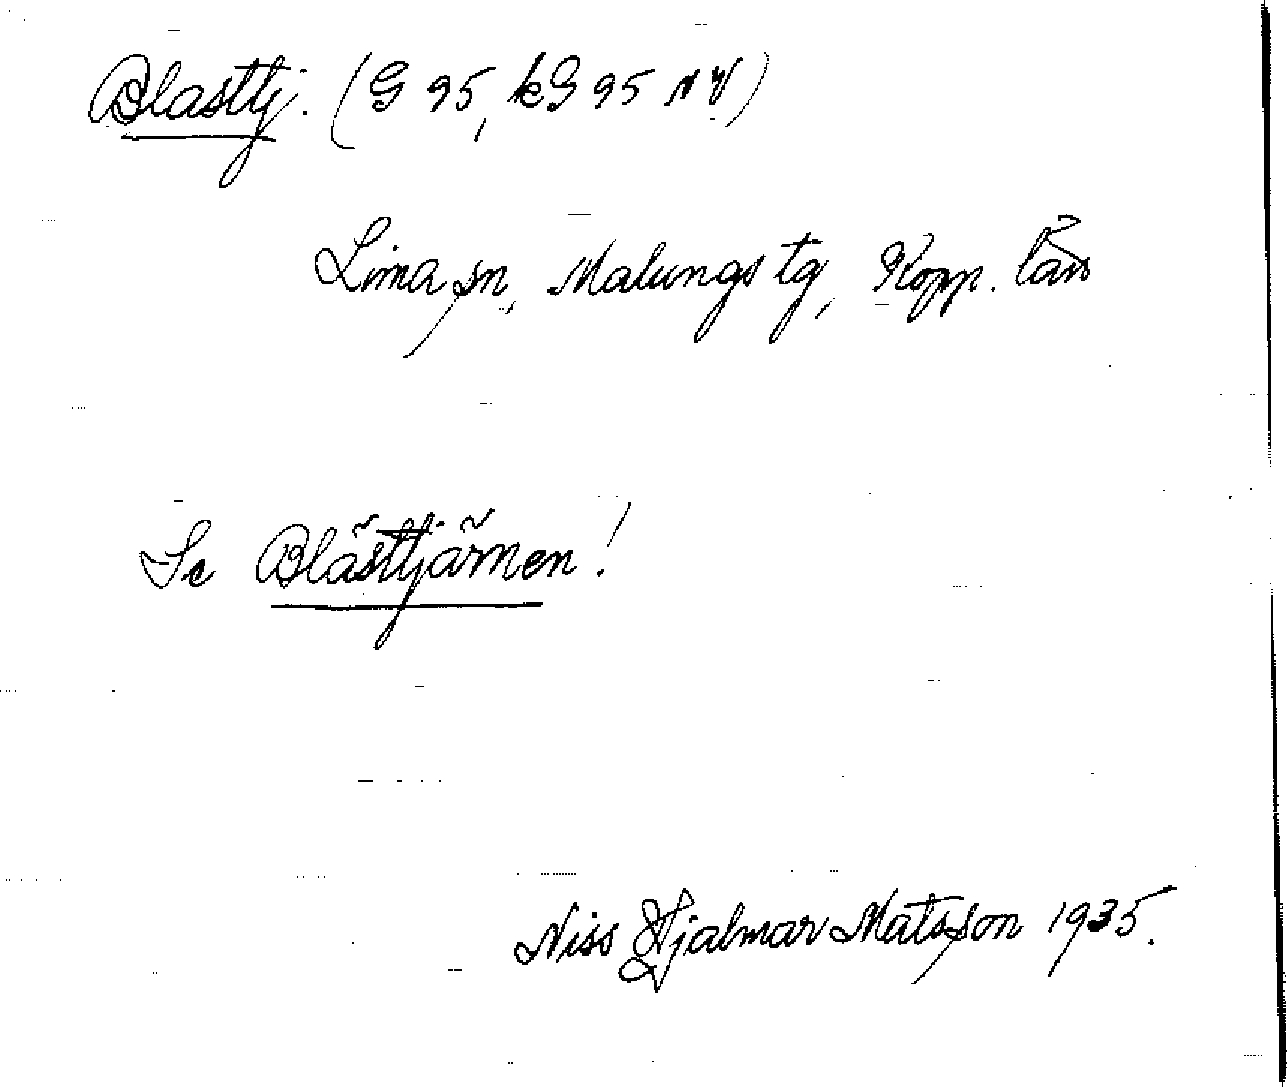 Blasttj. (G 95, kG 95 NV)
Lima sn, Malungs tg, Kopp. län
Se Blästtjärnen!
Niss Hjalmar Matsson 1935.